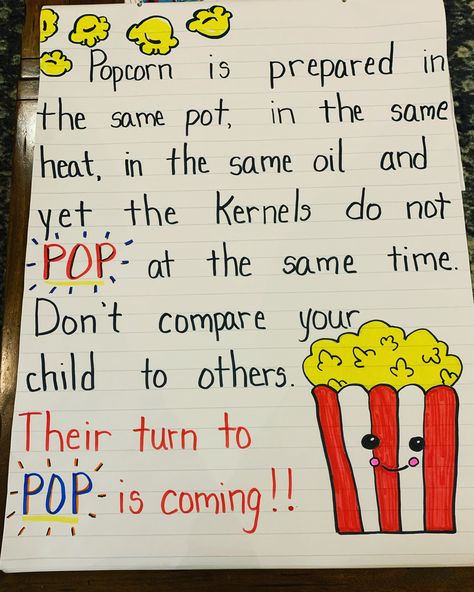 Popcorn is prepared in
the same pot, in the same
heat, in the same oil and
yet the Kernels do not
POP at the same time.
Don't compare your
child to others.
Their turn to
POP is coming!!